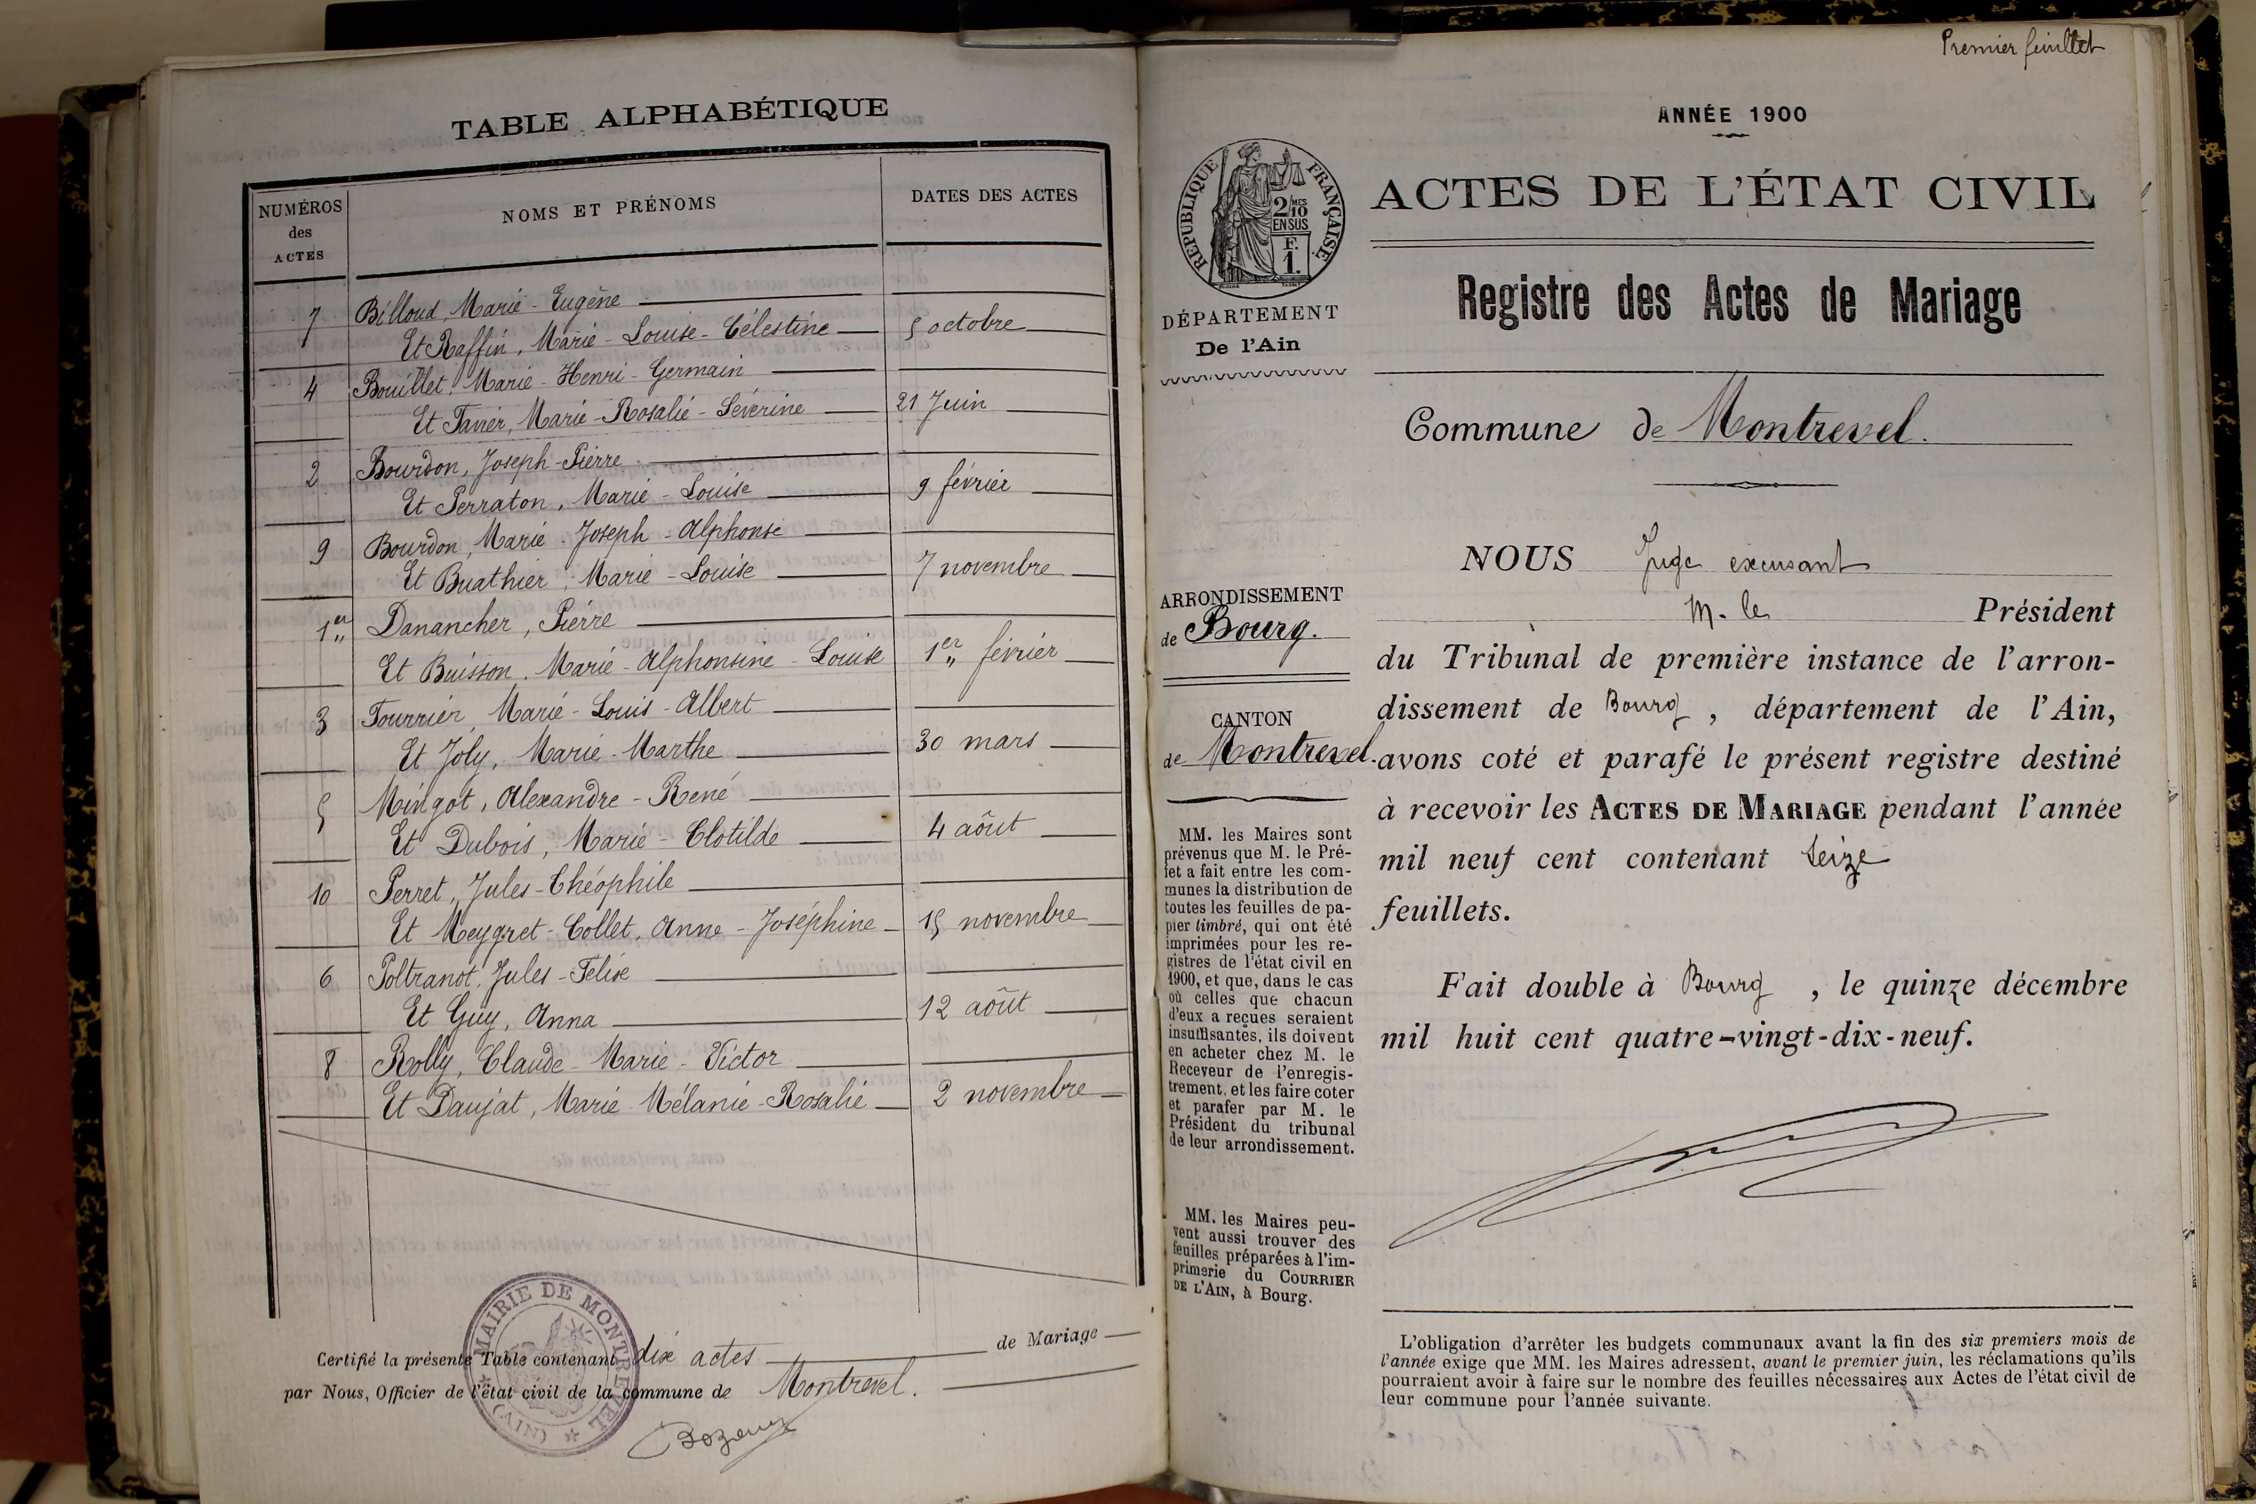 TABLE ALPHABÉTIQUE
NUMÉROS
des
ACTES
NOMS ET PRÉNOMS
DATES DES ACTES
7 Billoud, Marie-Eugène
Et Raffin, Marie-Louise-Célestine 5 octobre
4 Bouillet, Marie-Henri-Germain
Et Favier, Marie-Rosalie-Séverine 21 Juin
2 Bourdon, Joseph-Pierre
Et Perraton, Marie-Louise 9 février
9 Bourdon, Marie-Joseph-Alphonse
Et Buathier, Marie-Louise 7 novembre
1er Danancher, Pierre
Et Buisson, Marie-Alphonsine-Louise 1er février
3 Fourrier, Marie-Louis-Albert
Et Joly, Marie-Marthe 30 mars
5 Mingot, Alexandre-René
Et Dubois, Marie-Clotilde 4 août
10 Perret, Jules-Théophile
Et Meygret-Collet, Anne-Joséphine 15 novembre
6 Poltranot, Jules-Félix
Et Guy, Anna 12 août
8 Rolly, Claude-Marie-Victor
Et Daujat, Marie-Mélanie-Rosalie 2 novembre
MAIRIE DE MONTREVEL
(AIN)
Certifié la présente Table contenant dix actes de Mariage
par Nous, Officier de l'état civil de la commune de Montrevel.
Premier feuillet
ANNÉE 1900
RÉPUBLIQUE FRANÇAISE
2/10 MES
EN SUS
F.
1.
DÉPARTEMENT
De l'Ain
ARRONDISSEMENT
de Bourg.
CANTON
de Montrevel.
MM. les Maires sont
prévenus que M. le Pré-
fet a fait entre les com-
munes la distribution de
toutes les feuilles de pa-
pier timbré, qui ont été
imprimées pour les re-
gistres de l'état civil en
1900, et que, dans le cas
où celles que chacun
d'eux a reçues seraient
insuffisantes, ils doivent
en acheter chez M. le
Receveur de l'enregis-
trement, et les faire coter
et parafer par M. le
Président du tribunal
de leur arrondissement.
MM. les Maires peu-
vent aussi trouver des
feuilles préparées à l'im-
primerie du COURRIER
DE L'AIN, à Bourg.
ACTES DE L'ÉTAT CIVIL
Registre des Actes de Mariage
Commune de Montrevel.
NOUS Juge excusant
M. le Président
du Tribunal de première instance de l'arron-
dissement de Bourg, département de l'Ain,
avons coté et parafé le présent registre destiné
à recevoir les ACTES DE MARIAGE pendant l'année
mil neuf cent contenant seize
feuillets.
Fait double à Bourg, le quinze décembre
mil huit cent quatre-vingt-dix-neuf.
L'obligation d'arrêter les budgets communaux avant la fin des six premiers mois de
l'année exige que MM. les Maires adressent, avant le premier juin, les réclamations qu'ils
pourraient avoir à faire sur le nombre des feuilles nécessaires aux Actes de l'état civil de
leur commune pour l'année suivante.